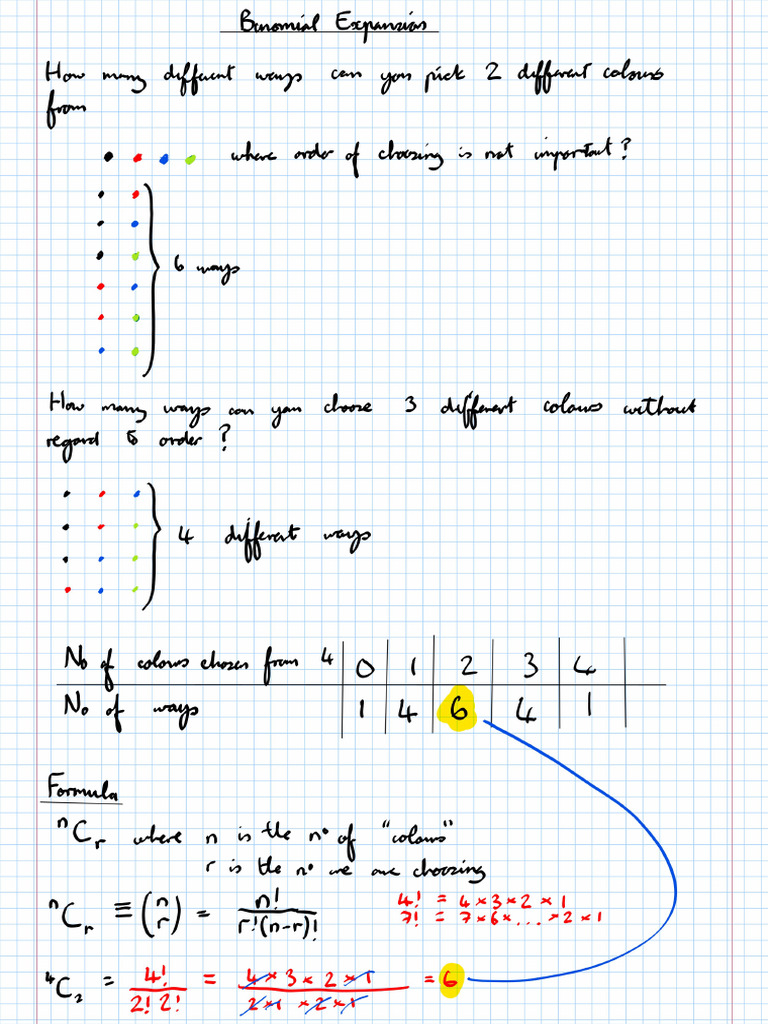 Binomial Expansion
How many different ways can you pick 2 different colours
from
where order of choosing is not important?
6 ways
How many ways can you choose 3 different colours without
regard to order?
4 different ways
No of colours chosen from 4 | 0 | 1 | 2 | 3 | 4
No of ways | 1 | 4 | 6 | 4 | 1
Formula
ⁿCᵣ where n is the nº of "colours"
r is the nº we are choosing
ⁿCᵣ ≡ (n r) = n! / r!(n-r)!
4! = 4×3×2×1
7! = 7×6×...×2×1
⁴C₂ = 4! / 2! 2! = 4×3×2×1 / 2×1×2×1 = 6